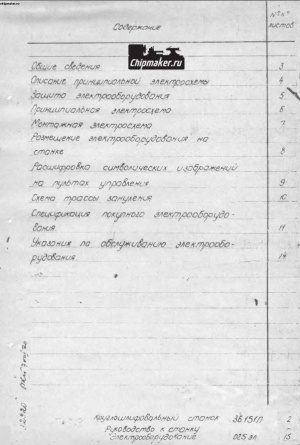 chipmaker.ru
№№
листов
Содержание
Chipmaker.ru
Общие сведения 3
Описание принципиальной электросхемы 4
Защита электрооборудования 5
Принципиальная электросхема 6
Монтажная электросхема 7
Размещение электрооборудования на
станке 8
Расшифровка символических изображений
на пультах управления 9
Схема трассы зануления 10
Спецификация покупного электрооборудо-
вания 11
Указания по обслуживанию электрообо-
рудования. 14
Круглошлифовальный станок 3Б151П 2
Руководство к станку
Электрооборудование 15